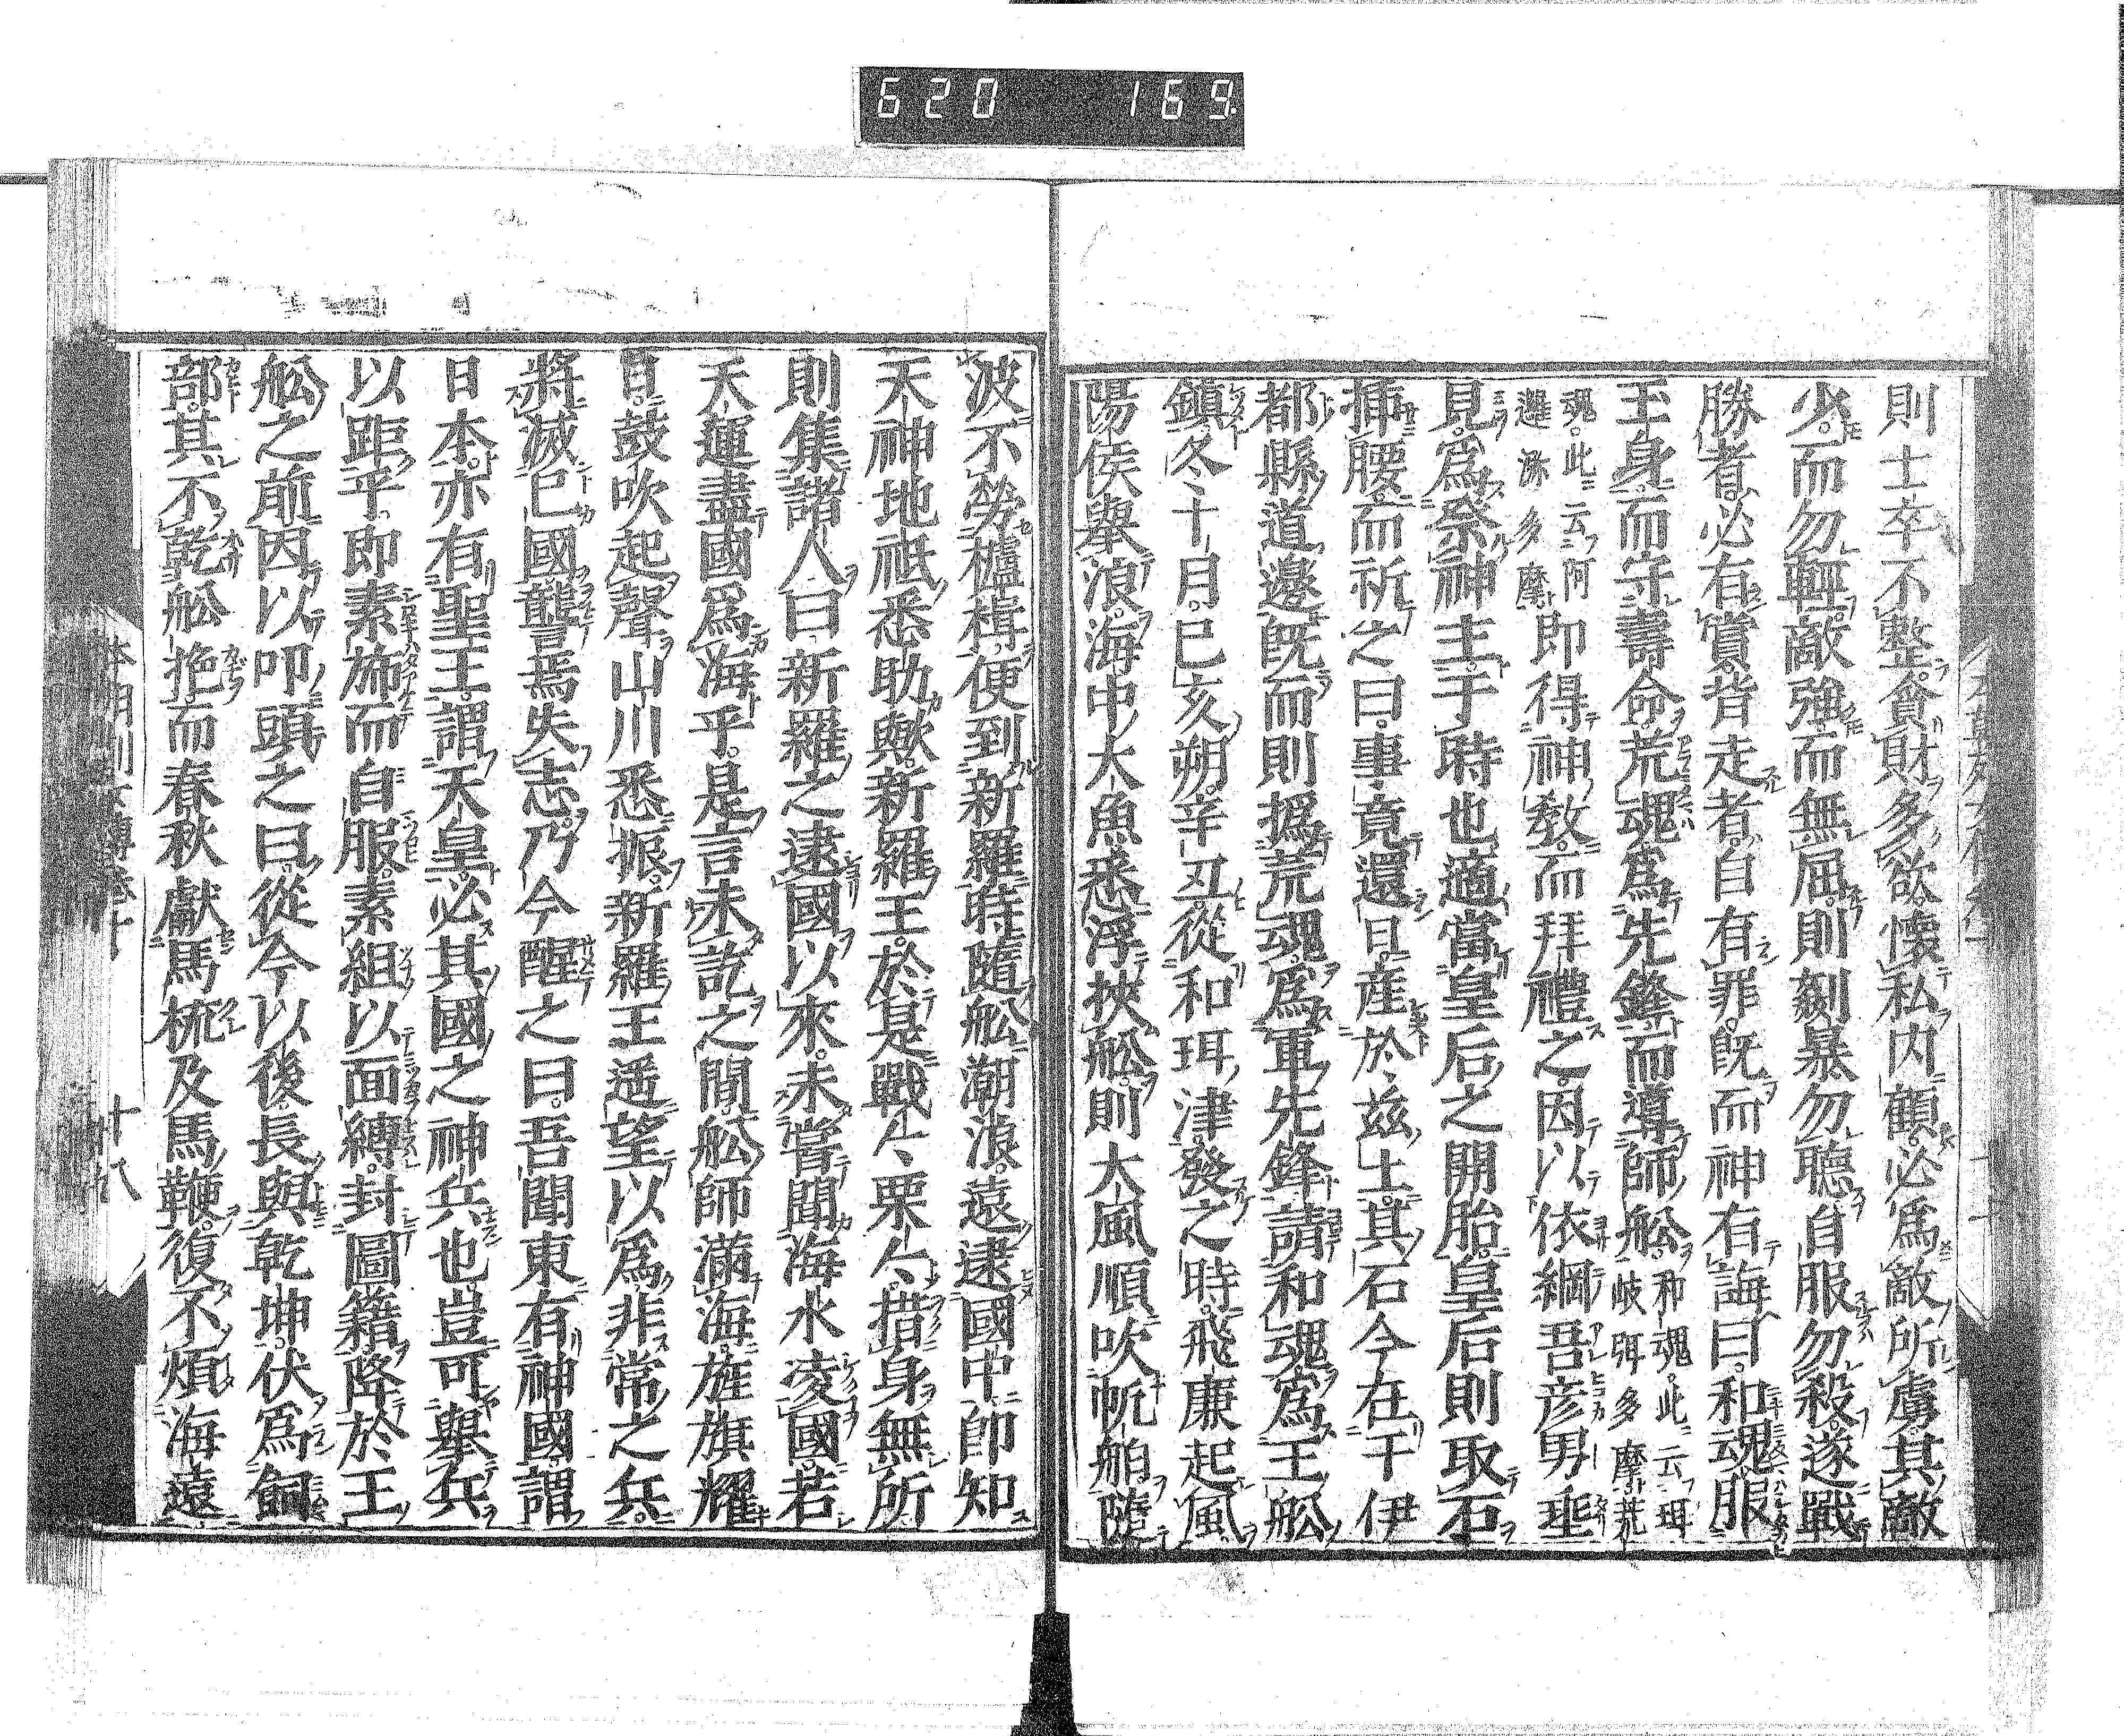 620 169
則士卒不整貪財多欲懷私内顧必爲敵所虜其敵
少而勿輕敵強而無屈則姧暴勿聽自服勿殺遂戰
勝者必有賞背走者自有罪既而神有誨曰和魂服
王身而守壽命荒魂爲先鋒而導師舩和魂此云珥岐弭多摩荒
魂此云阿邏瀰多摩即得神敎而拜禮之因以依網吾彦男垂
見爲祭神主于時也適當皇后之開胎皇后則取石
插腰而祈之曰事竟還日産於茲土其石今在干伊
都縣道邊既而則撝荒魂爲軍先鋒請和魂爲王舩
鎮冬十月己亥朔辛丑從和珥津發之時飛廉起風
陽侯擧浪海中大魚悉浮挾舩則大風順吹帆舶隨
波不勞櫨楫便到新羅時隨舩潮浪遠逮國中即知
天神地祇悉助歟新羅王於是戰々栗々措身無所
則集諸人曰新羅之逮國以來未嘗聞海水凌國若
天運盡國爲海乎是言未訖之間舩師滿海旌旗耀
日鼓吹起聲山川悉振新羅王遥望以爲非常之兵
將滅已國讋焉失志乃今醒之曰吾聞東有神國謂
日本亦有聖王謂天皇必其國之神兵也豈可擧兵
以距乎即素旆而自服素組以面縛封圖籍降於王
舩之前因以叩頭之曰從今以後長與乾坤伏爲飼
部其不乾舩柂而春秋獻馬梳及馬鞭復不煩海遠
十八